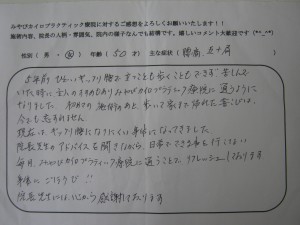 みやびカイロプラクティック療院に対するご感想をよろしくお願いいたします!!
施術内容、院長の人柄・雰囲気、院内の様子なんでも結構です。嬉しいコメント大歓迎です (*^_^*)
性別(男・女) 年齢(50才) 主な症状(腰痛、五十肩)
5年前 ひどいギックリ腰で まっすぐ歩くこともできず 苦しんで
いた時に 主人のすすめで みやびカイロプラクティック療院に通うように
なりました。 初めての施術のあと、歩いて家まで帰れた喜びは、
今も忘れません
現在はギックリ腰になりにくい事になってきました。
院長先生のアドバイスを聞きながら、日常でできる事を行ない
毎月、みやびカイロプラクティック療院に通うことで、リフレッシュしております
本当にありがとう!!
院長先生には心から感謝しております